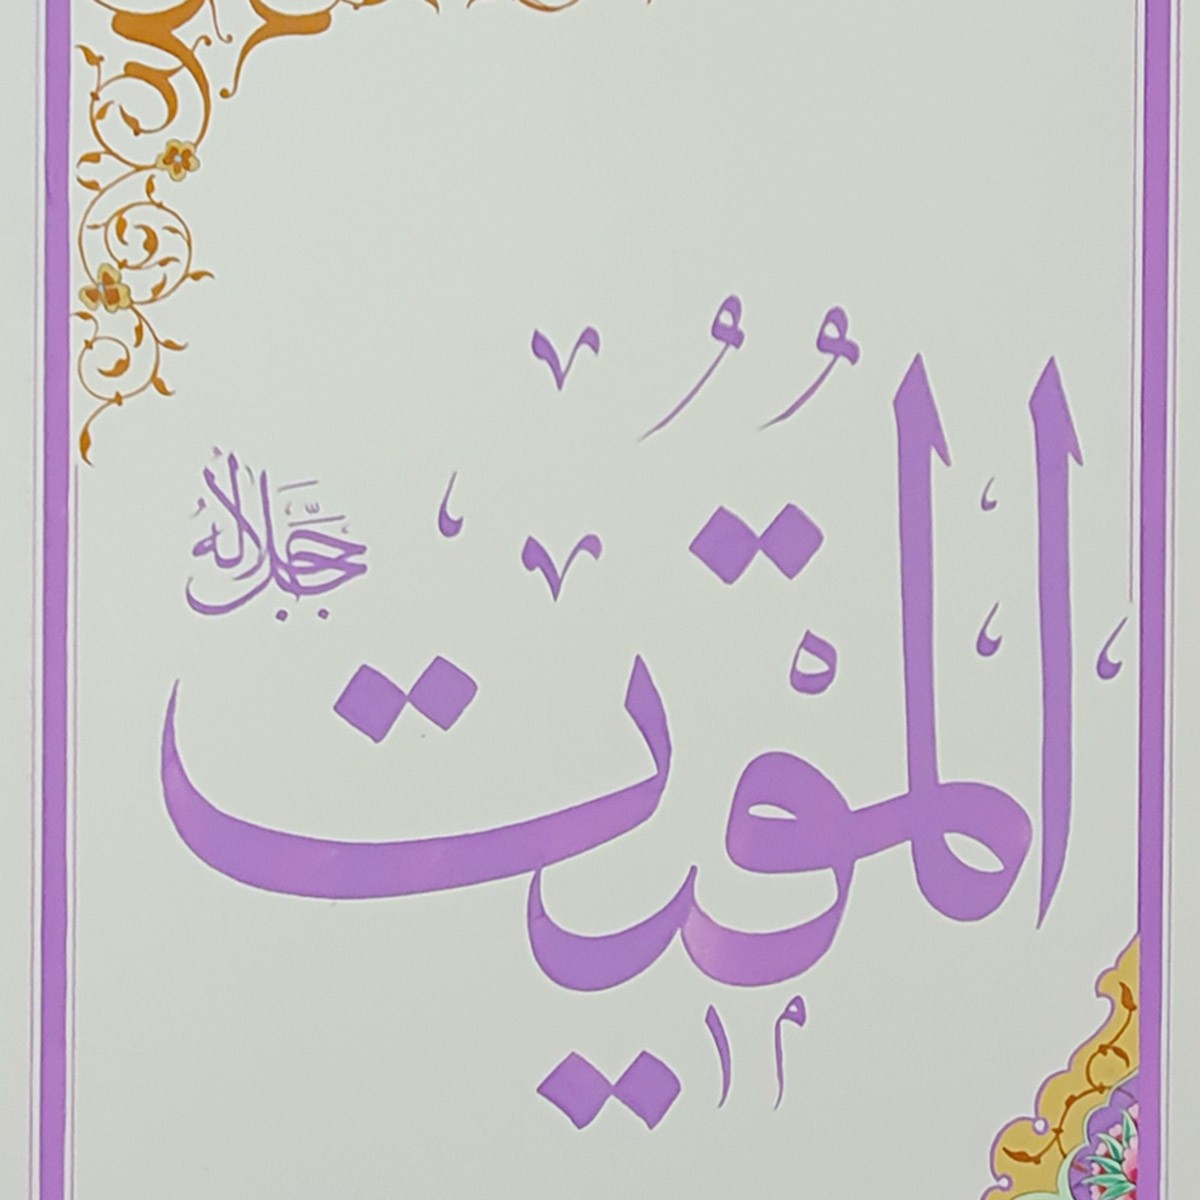 المُقيتُ جَلَّ جلالهُ